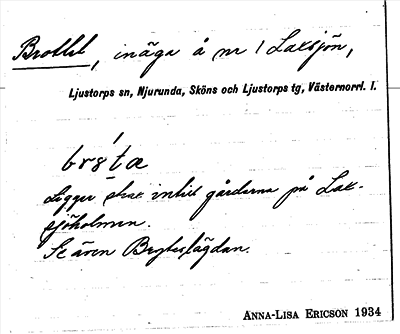 Brottet, inäga å nr 1 Laxsjön,
Ljustorps sn, Njurunda, Sköns och Ljustorps tg, Västernorrl. l.
Ligger strax intill gårdarna på Lax-
sjöholmen.
Se även Brytes lägdan.
ANNA-LISA ERICSON 1934